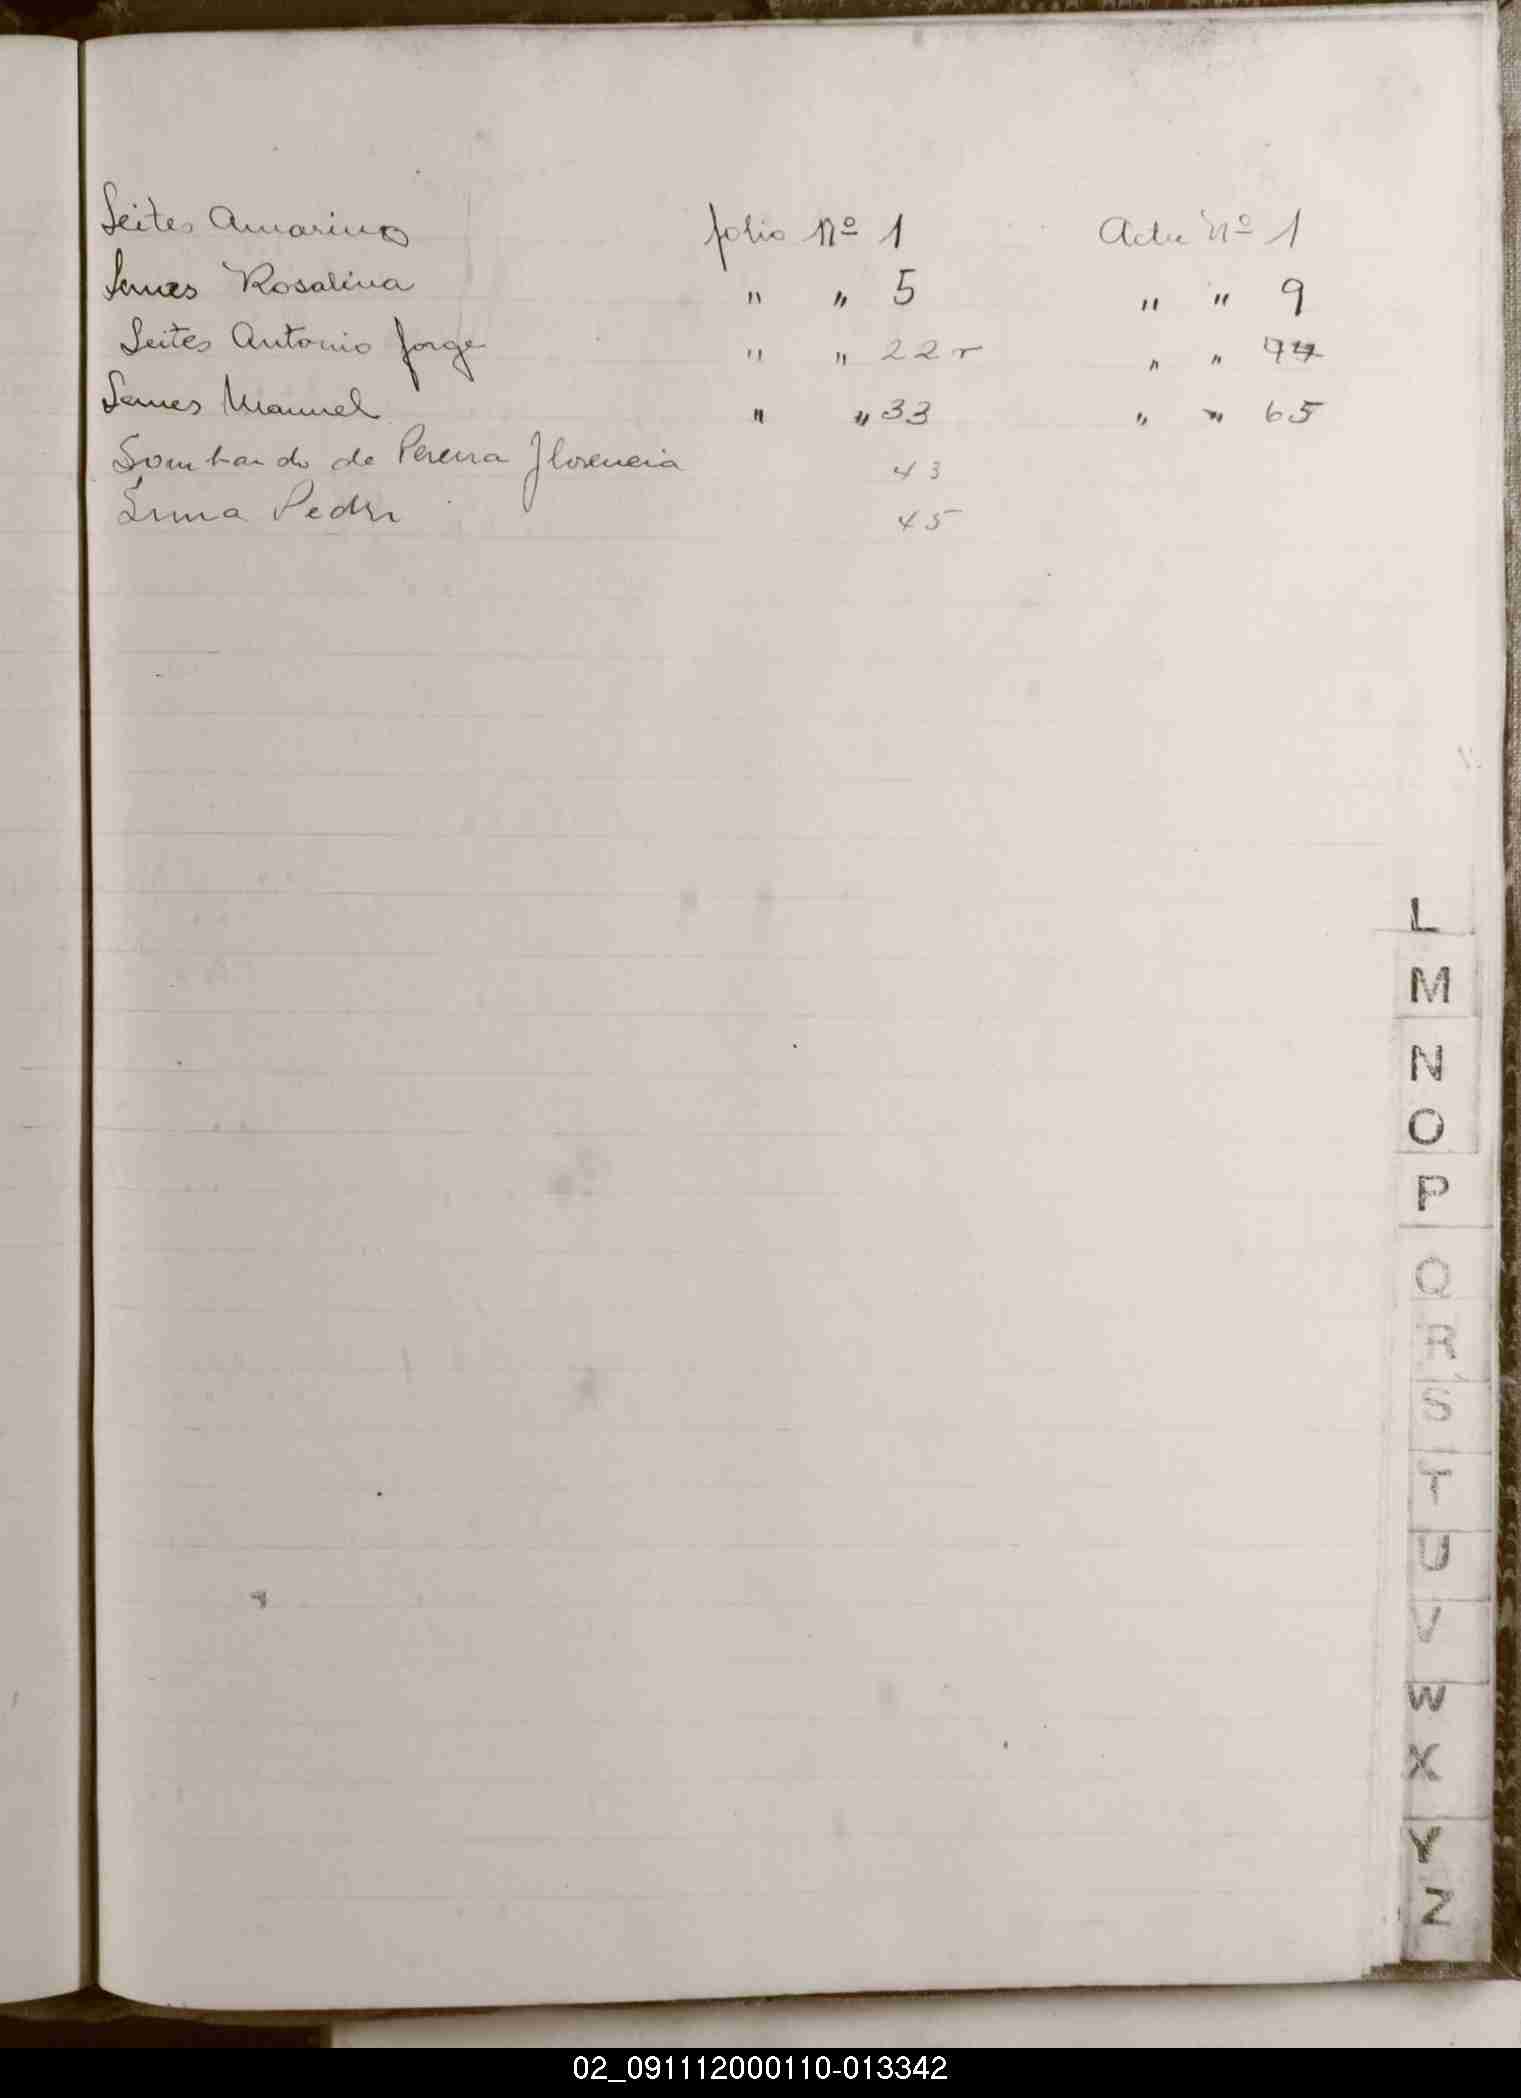 Leites Amarino folio Nº 1 Acta Nº 1
Lemes Rosalina " " 5 " " 9
Leites Antonio Jorge " " 22 r " " 44
Lemes Manuel " " 33 " " 65
Lombardo de Pereira Florencia 43
Lima Pedro 45
L
M
N
O
P
Q
R
S
T
U
V
W
X
Y
Z
02_091112000110-013342